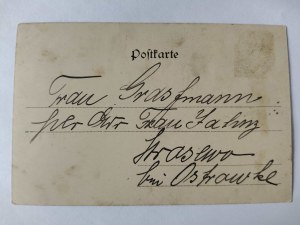 Postkarte
Frau Grassmann
per Adr Frau Jahnz
Strasewo
bei Ostrowke